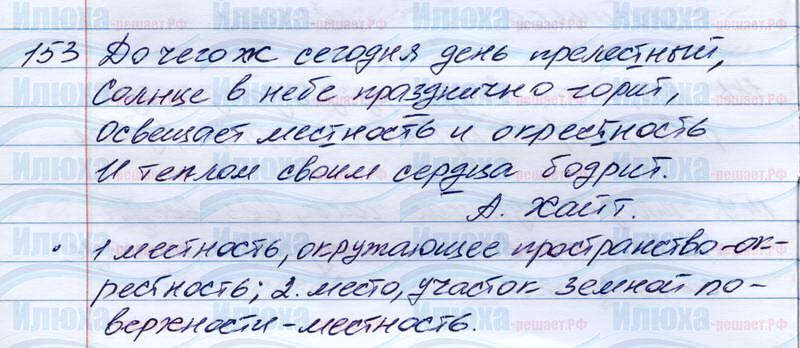 153 До чего ж сегодня день прелестный,
Солнце в небе празднично горит,
Освещает местность и окрестность
И теплом своим сердца бодрит.
А. Хайт.
1 местность, окружающее пространство-ок-
рестность; 2. место, участок земной по-
верхности-местность.
Илюха-решает.РФ